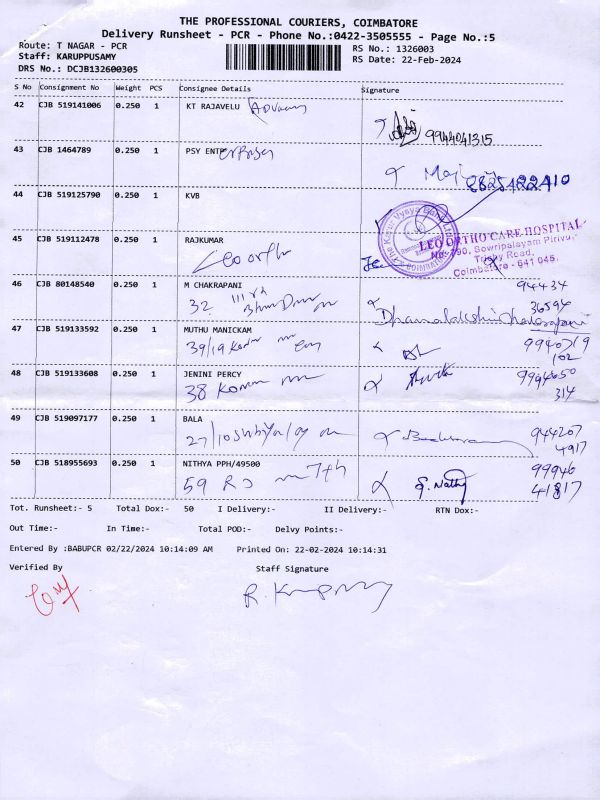 THE PROFESSIONAL COURIERS, COIMBATORE
Delivery Runsheet - PCR - Phone No.:0422-3505555 - Page No.:5
Route: T NAGAR - PCR
RS No.: 1326003
Staff: KARUPPUSAMY
RS Date: 22-Feb-2024
DRS No.: DCJB132600305
S No Consignment No Weight PCS Consignee Details Signature
42 CJB 519141006 0.250 1 KT RAJAVELU
9944041315
43 CJB 1464789 0.250 1 PSY ENTP
44 CJB 519125790 0.250 1 KVB
LEO ORTHO CARE HOSPITAL
No: 790, Sowripalayam Pirivu,
Trichy Road,
Coimbatore - 641 045.
45 CJB 519112478 0.250 1 RAJKUMAR
Leo ortho
46 CJB 80148540 0.250 1 M CHAKRAPANI
94434
36594
32
47 CJB 519133592 0.250 1 MUTHU MANICKAM
9940719
102
39/19
48 CJB 519133608 0.250 1 JENINI PERCY
314
38
49 CJB 519097177 0.250 1 BALA
944207
4917
50 CJB 518955693 0.250 1 NITHYA PPH/49500
99946
41817
59 7th
Tot. Runsheet:- 5 Total Dox:- 50 I Delivery:- II Delivery:- RTN Dox:-
Out Time:- In Time:- Total POD:- Delvy Points:-
Entered By :BABUPCR 02/22/2024 10:14:09 AM Printed On: 22-02-2024 10:14:31
Verified By Staff Signature